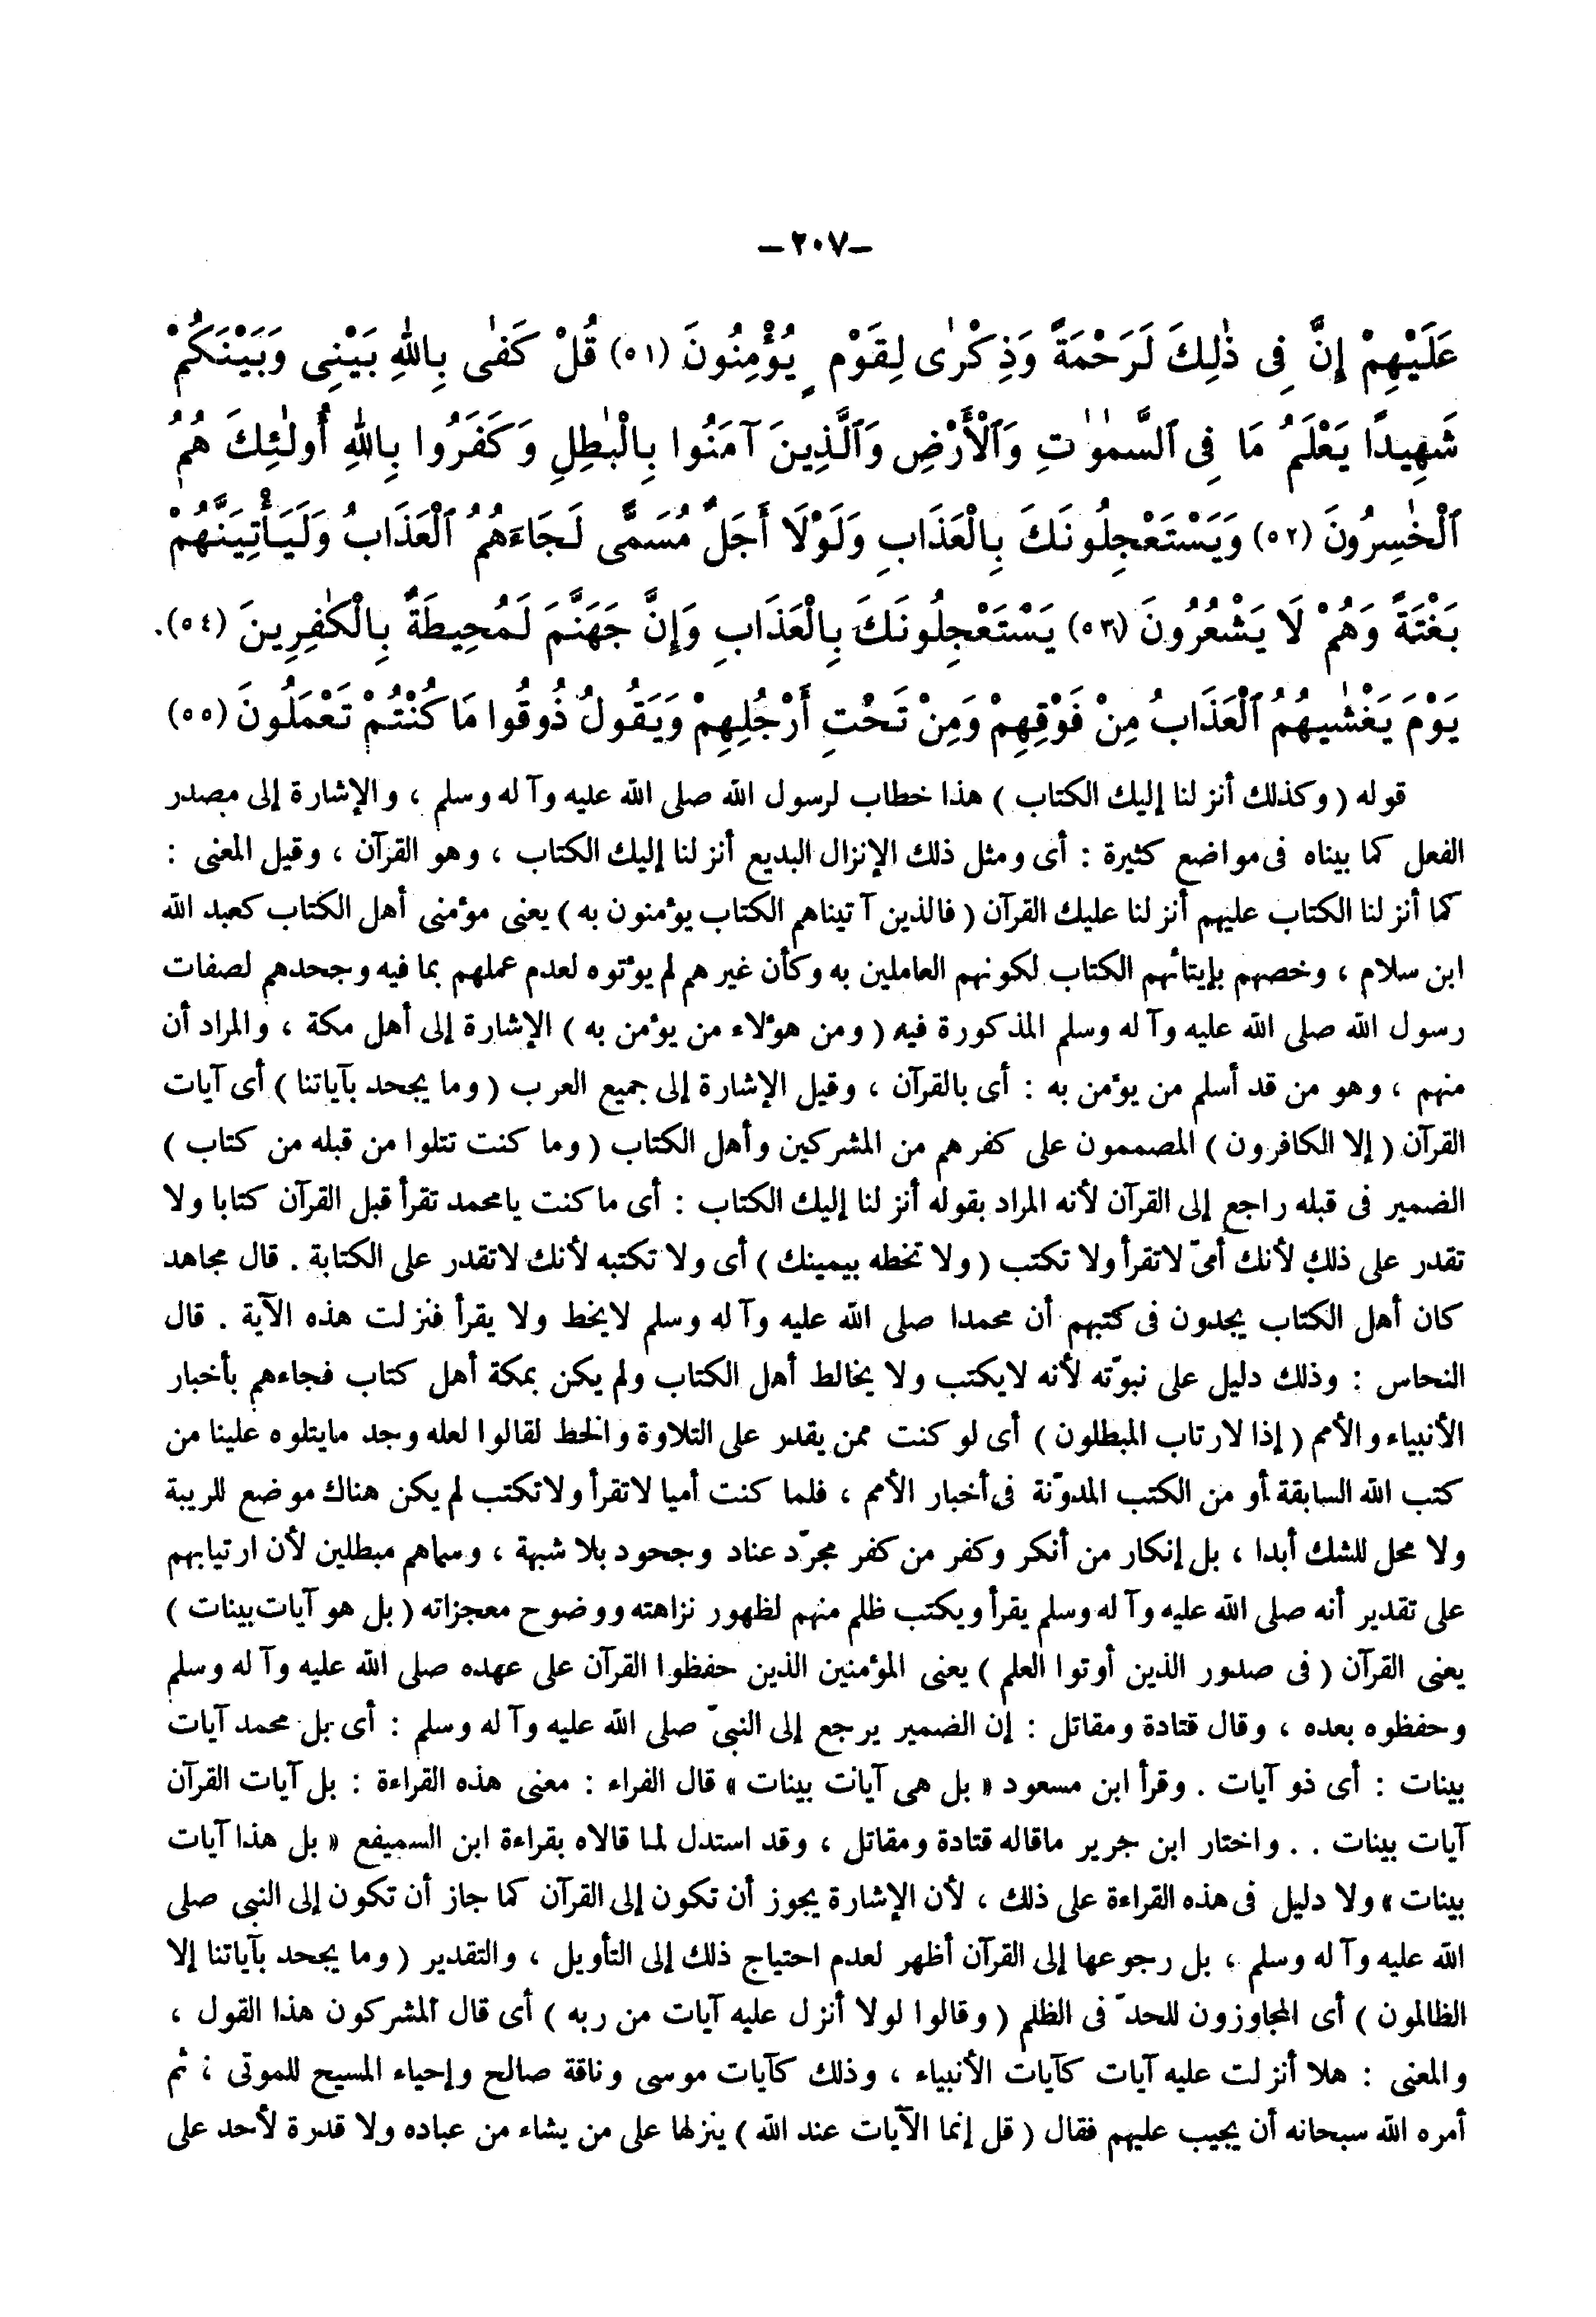 -٢٠٧-
عَلَيْهِمْ إِنَّ فِى ذٰلِكَ لَرَحْمَةً وَذِكْرٰى لِقَوْمٍ يُؤْمِنُونَ (٥١) قُلْ كَفٰى بِاللهِ بَيْنِى وَبَيْنَكُمْ
شَهِيدًا يَعْلَمُ مَا فِى ٱلسَّمٰوٰتِ وَٱلْأَرْضِ وَٱلَّذِينَ آمَنُوا بِالْبٰطِلِ وَكَفَرُوا بِاللهِ أُولٰئِكَ هُمُ
ٱلْخٰسِرُونَ (٥٢) وَيَسْتَعْجِلُونَكَ بِالْعَذَابِ وَلَوْلَا أَجَلٌ مُسَمًّى لَجَاءَهُمُ ٱلْعَذَابُ وَلَيَأْتِيَنَّهُمْ
بَغْتَةً وَهُمْ لَا يَشْعُرُونَ (٥٣) يَسْتَعْجِلُونَكَ بِالْعَذَابِ وَإِنَّ جَهَنَّمَ لَمُحِيطَةٌ بِالْكٰفِرِينَ (٥٤).
يَوْمَ يَغْشٰيهُمُ ٱلْعَذَابُ مِنْ فَوْقِهِمْ وَمِنْ تَحْتِ أَرْجُلِهِمْ وَيَقُولُ ذُوقُوا مَا كُنْتُمْ تَعْمَلُونَ (٥٥)
قوله ( وكذلك أنزلنا إليك الكتاب ) هذا خطاب لرسول الله صلى الله عليه وآله وسلم ، والإشارة إلى مصدر
الفعل كما بيناه فى مواضع كثيرة : أى ومثل ذلك الإنزال البديع أنزلنا إليك الكتاب ، وهو القرآن ، وقيل المعنى :
كما أنزلنا الكتاب عليهم أنزلنا عليك القرآن ( فالذين آتيناهم الكتاب يؤمنون به ) يعنى مؤمنى أهل الكتاب كعبد الله
ابن سلام ، وخصهم بإيتائهم الكتاب لكونهم العاملين به وكأن غيرهم لم يؤتوه لعدم عملهم بما فيه وجحدهم لصفات
رسول الله صلى الله عليه وآله وسلم المذكورة فيه ( ومن هؤلاء من يؤمن به ) الإشارة إلى أهل مكة ، والمراد أن
منهم ، وهو من قد أسلم من يؤمن به : أى بالقرآن ، وقيل الإشارة إلى جميع العرب ( وما يجحد بآياتنا ) أى آيات
القرآن ( إلا الكافرون ) المصممون على كفرهم من المشركين وأهل الكتاب ( وما كنت تتلوا من قبله من كتاب )
الضمير فى قبله راجع إلى القرآن لأنه المراد بقوله أنزلنا إليك الكتاب : أى ما كنت يامحمد تقرأ قبل القرآن كتابا ولا
تقدر على ذلك لأنك أمىّ لاتقرأ ولا تكتب ( ولا تخطه بيمينك ) أى ولا تكتبه لأنك لاتقدر على الكتابة . قال مجاهد
كان أهل الكتاب يجدون فى كتبهم أن محمدا صلى الله عليه وآله وسلم لايخط ولا يقرأ فنزلت هذه الآية . قال
النحاس : وذلك دليل على نبوّته لأنه لايكتب ولا يخالط أهل الكتاب ولم يكن بمكة أهل كتاب فجاءهم بأخبار
الأنبياء والأمم ( إذا لارتاب المبطلون ) أى لو كنت ممن يقدر على التلاوة والخط لقالوا لعله وجد مايتلوه علينا من
كتب الله السابقة أو من الكتب المدوّنة فى أخبار الأمم ، فلما كنت أميا لاتقرأ ولاتكتب لم يكن هناك موضع للريبة
ولا محل للشك أبدا ، بل إنكار من أنكر وكفر من كفر مجرّد عناد وجحود بلا شبهة ، وسماهم مبطلين لأن ارتيابهم
على تقدير أنه صلى الله عليه وآله وسلم يقرأ ويكتب ظلم منهم لظهور نزاهته ووضوح معجزاته ( بل هو آيات بينات )
يعنى القرآن ( فى صدور الذين أوتوا العلم ) يعنى المؤمنين الذين حفظوا القرآن على عهده صلى الله عليه وآله وسلم
وحفظوه بعده ، وقال قتادة ومقاتل : إن الضمير يرجع إلى النبىّ صلى الله عليه وآله وسلم : أى بل محمد آيات
بينات : أى ذو آيات . وقرأ ابن مسعود « بل هى آيات بينات » قال الفراء : معنى هذه القراءة : بل آيات القرآن
آيات بينات . . واختار ابن جرير ماقاله قتادة ومقاتل ، وقد استدل لما قالاه بقراءة ابن السميفع « بل هذا آيات
بينات » ولا دليل فى هذه القراءة على ذلك ، لأن الإشارة يجوز أن تكون إلى القرآن كما جاز أن تكون إلى النبى صلى
الله عليه وآله وسلم ، بل رجوعها إلى القرآن أظهر لعدم احتياج ذلك إلى التأويل ، والتقدير ( وما يجحد بآياتنا إلا
الظالمون ) أى المجاوزون للحدّ فى الظلم ( وقالوا لولا أنزل عليه آيات من ربه ) أى قال المشركون هذا القول ،
والمعنى : هلا أنزلت عليه آيات كآيات الأنبياء ، وذلك كآيات موسى وناقة صالح وإحياء المسيح للموتى ، ثم
أمره الله سبحانه أن يجيب عليهم فقال ( قل إنما الآيات عند الله ) ينزلها على من يشاء من عباده ولا قدرة لأحد على